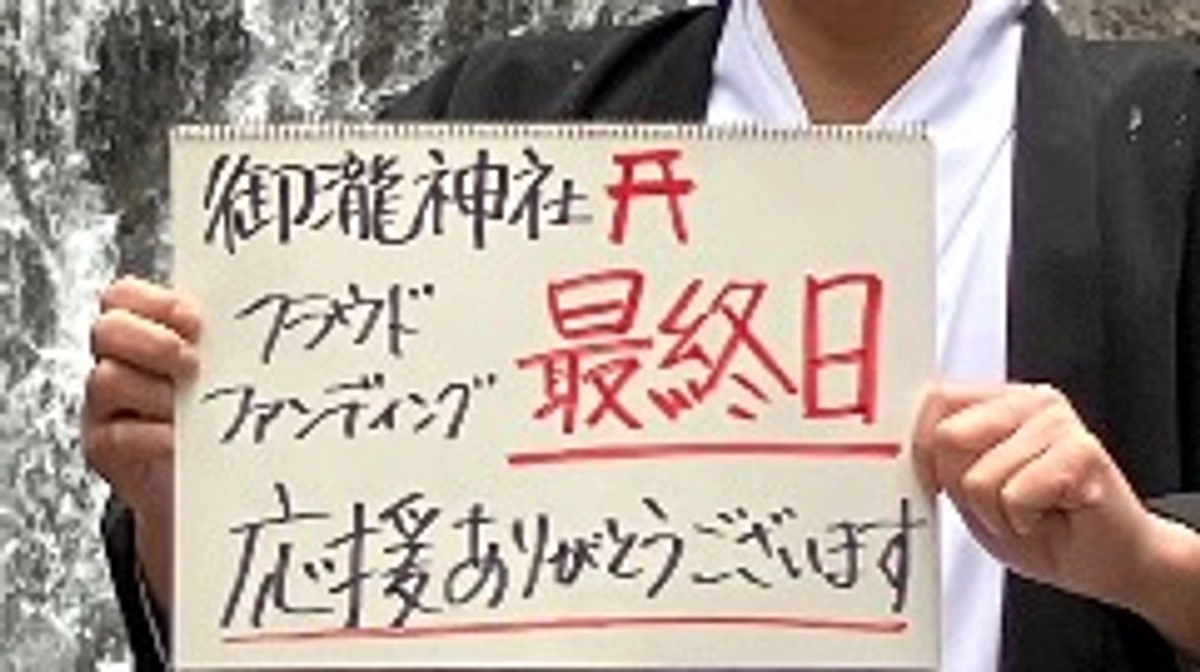 御瀧神社
クラウド
ファンディング
最終日
応援ありがとうございます